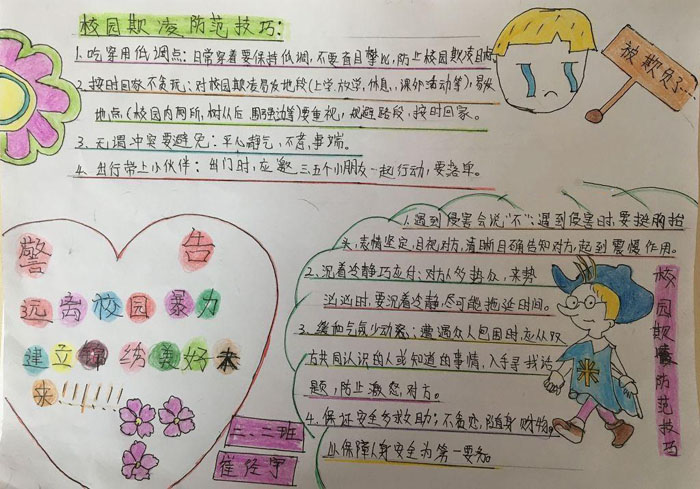 校园欺凌防范技巧:
1.吃穿用低调点:日常穿着要保持低调,不要盲目攀比,防止校园欺凌
被欺负了…
2.按时回家不贪玩:对校园欺凌易发地段(上学,放学,休息,课外活动等),易发
地点(校园内厕所,树从后围强边等)要重视,规避路段,按时回家。
3.无谓冲突要避免:平心静气,不惹事端。
4.出行带上小伙伴:出门时,应邀三五个小朋友一起行动,要落单。
1.遇到侵害会说"不":遇到侵害时,要挺胸抬
头,表情坚定,目视对方,清晰目确告知对方,起到震慑作用。
2.沉着冷静巧应付:对方人多势众,来势
汹汹时,要沉着冷静,尽可能拖延时间。
3.缓和气氛少动怒:遭遇众人包围时,应从双
方共同认识的人或知道的事情,入手寻找话
题,防止激怒对方。
4.保证安全多求助:不贪恋随身财物。
以保障人身安全为第一要务。
校园欺凌防范技巧
警告
远离校园暴力
建立 美好未
来!!!!!!
二.二班
崔径宇